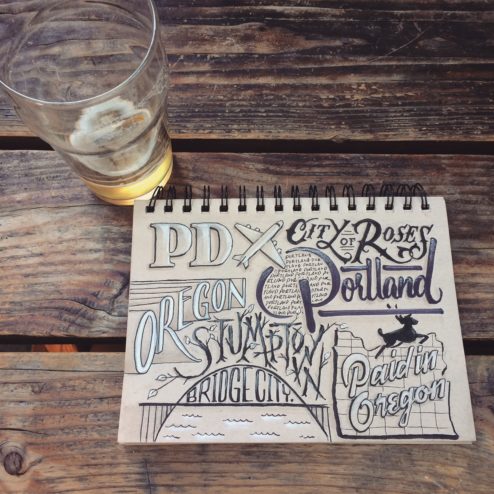 PDX
CITY OF ROSES
Portland
OREGON
STUMPTOWN
BRIDGE CITY.
Paid in
Oregon